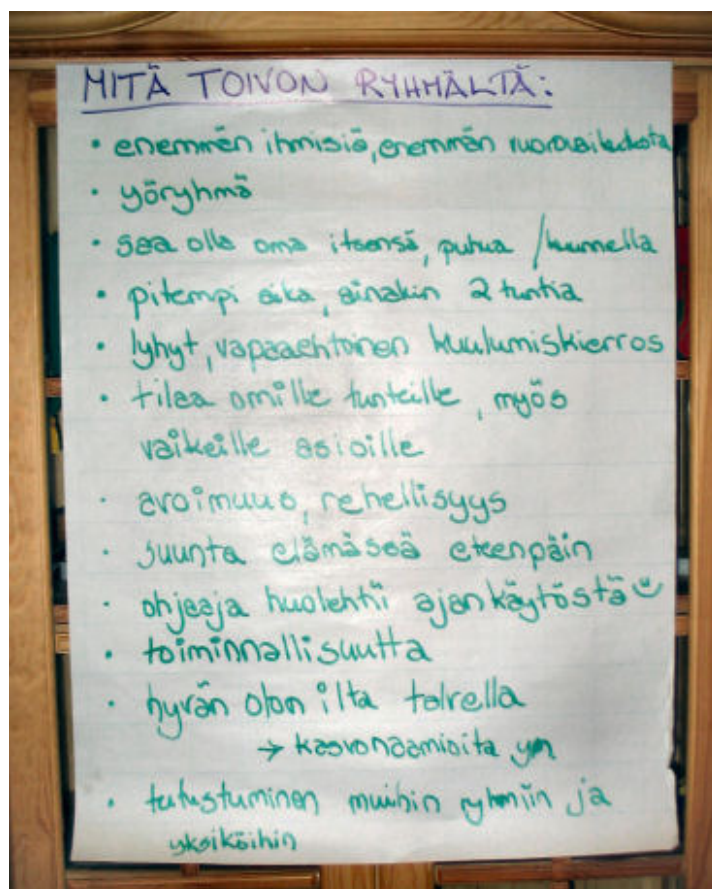 MITÄ TOIVON RYHMÄLTÄ:
• enemmän ihmisiä, enemmän vuorovaikutusta
• yöryhmä
• saa olla oma itsensä, puhua / kuunnella
• pitempi aika, ainakin 2 tuntia
• lyhyt, vapaaehtoinen kuulumiskierros
• tilaa omille tunteille, myös
vaikeille asioille
• avoimuus, rehellisyys
• suunta elämässä eteenpäin
• ohjaaja huolehtii ajankäytöstä
• toiminnallisuutta
• hyvän olon ilta talvella
→ kasvonaamioita ym
• tutustuminen muihin ryhmiin ja
yksiköihin